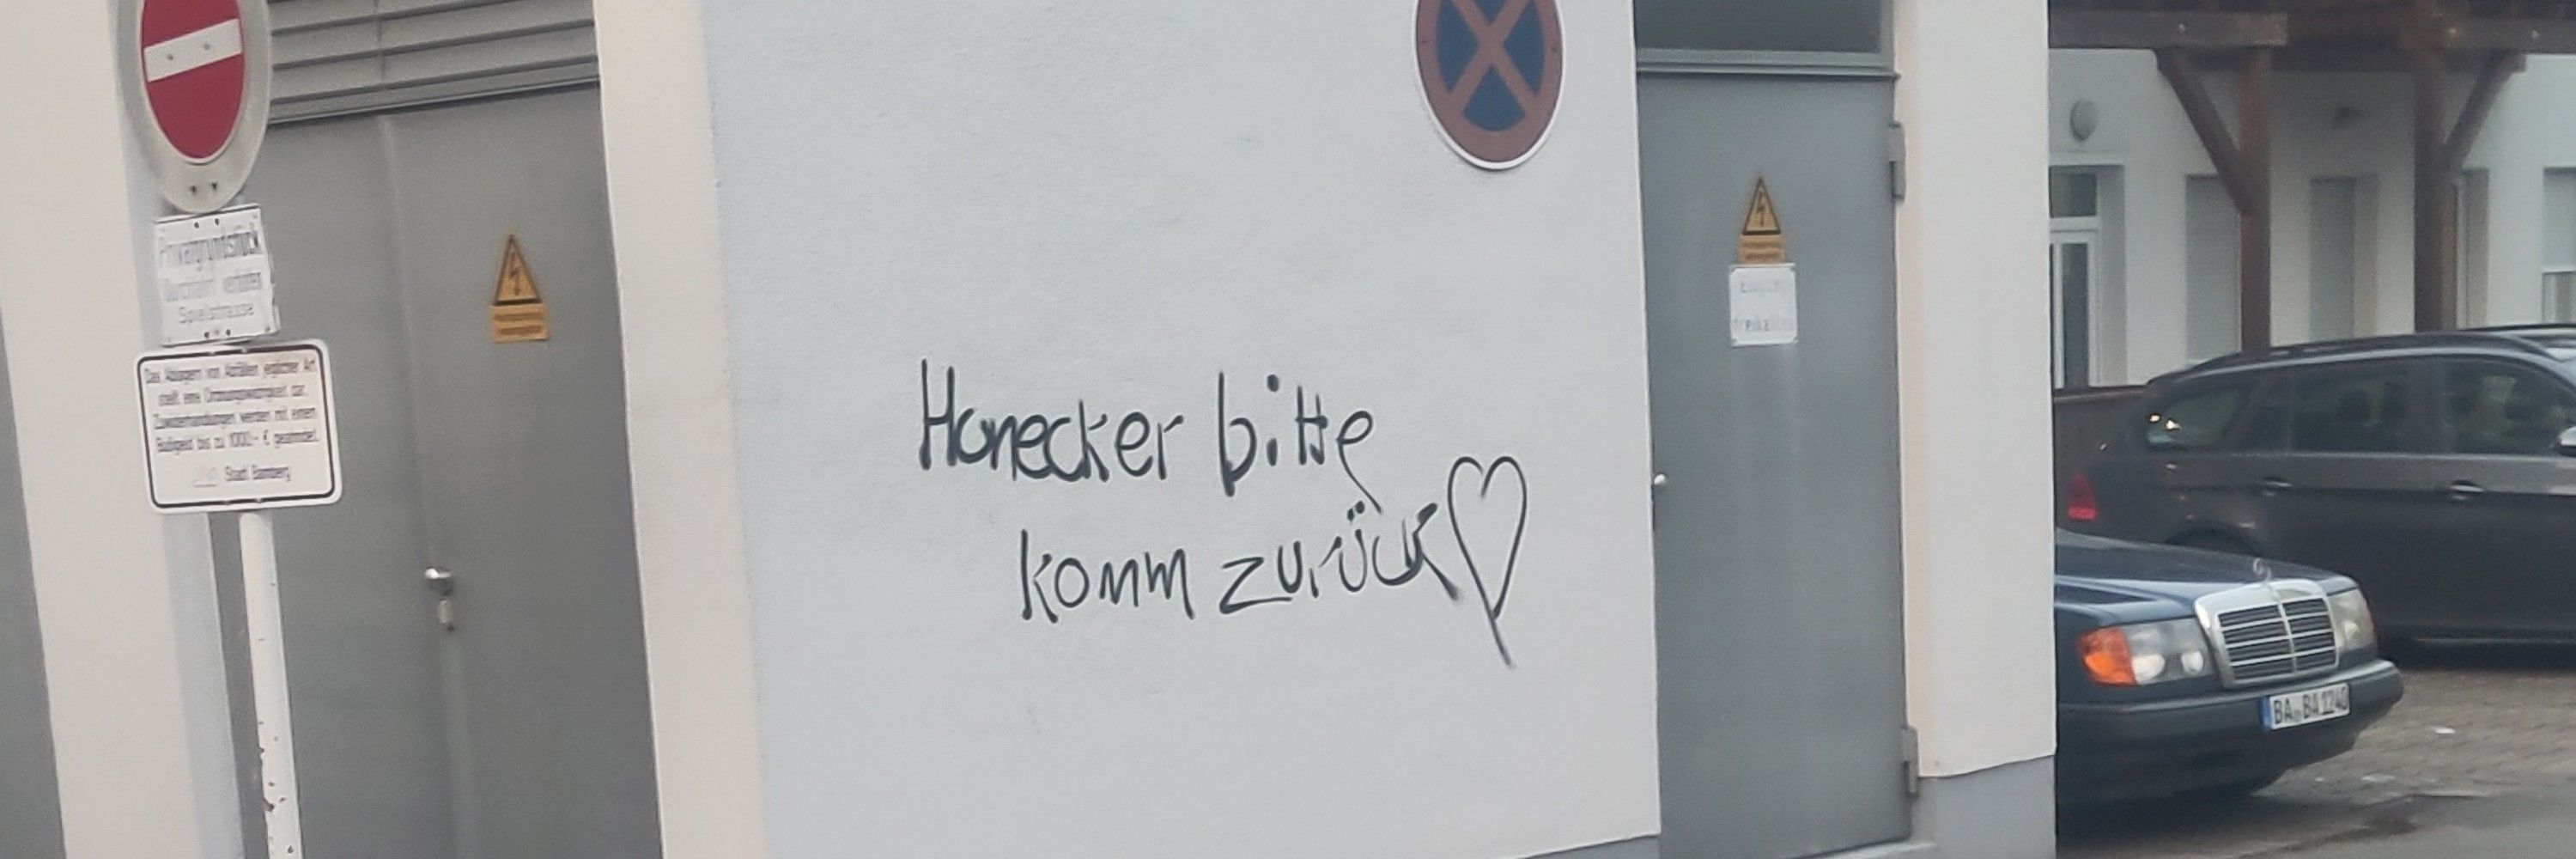 Privatgrundstück
Durchfahrt verboten
Spielstrasse
Das Ablagern von Abfällen jeglicher Art
stellt eine Ordnungswidrigkeit dar.
Zuwiderhandlungen werden mit einem
Bußgeld bis zu 1000,- € geahndet.
Stadt Bamberg
Honecker bitte
komm zurück
BA BA 1240